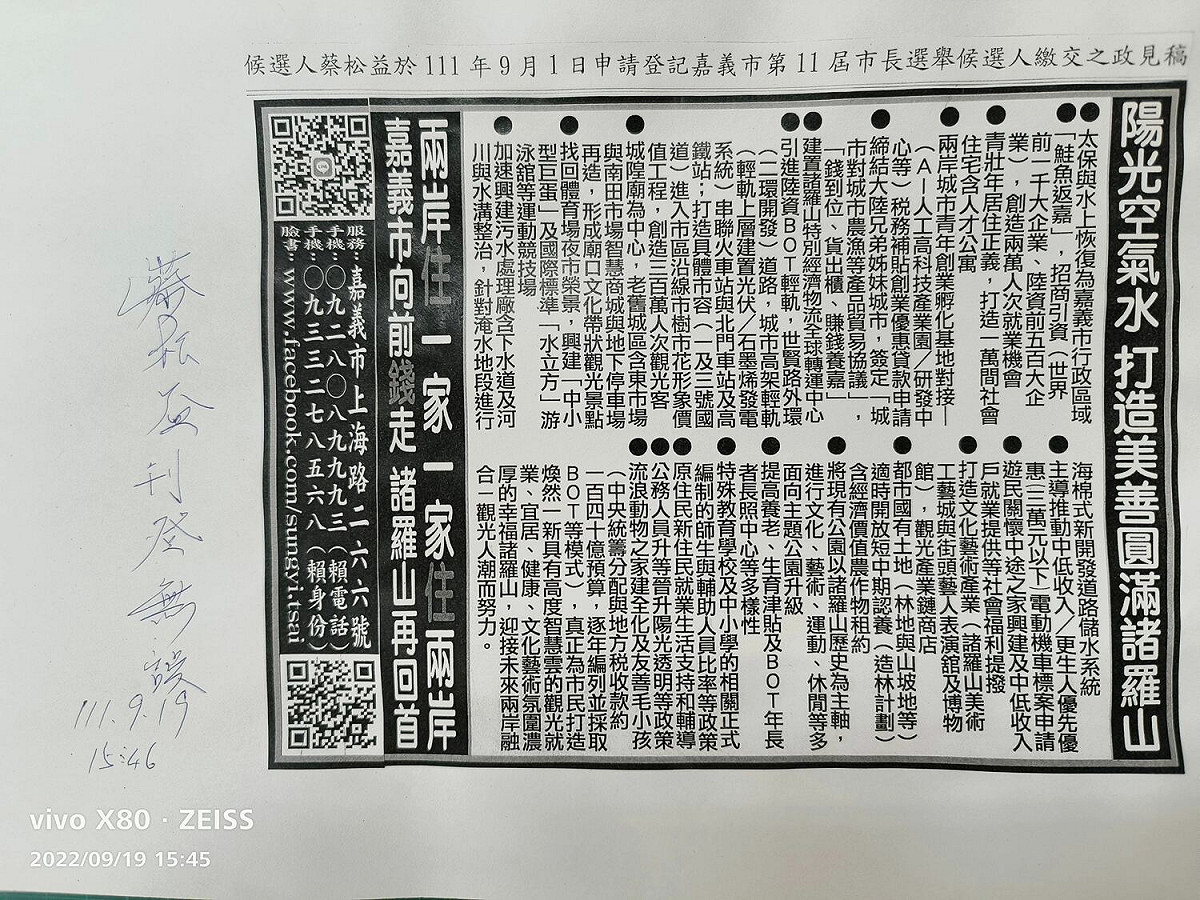 候選人蔡松益於111年9月1日申請登記嘉義市第11屆市長選舉候選人繳交之政見稿
陽光空氣水 打造美善圓滿諸羅山
●太保與水上恢復為嘉義市行政區域
●「鮭魚返嘉」，招商引資（世界
前一千大企業、陸資前五百大企
業），創造兩萬人次就業機會
●青壯年居住正義，打造一萬間社會
住宅含人才公寓
●兩岸城市青年創業孵化基地對接—
（AI—人工高科技產業園／研發中
心等）稅務補貼創業優惠貸款申請
●締結大陸兄弟姊妹城市，簽定「城
市對城市農漁等產品貿易協議」，
「錢到位、貨出櫃、賺錢養嘉」
●建置諸羅山特別經濟物流全球轉運中心
●引進陸資BOT輕軌，世賢路外環
（二環開發）道路，城市高架輕軌
（輕軌上層建置光伏／石墨烯發電
系統）串聯火車站與北門車站及高
鐵站；打造具體市容（一及三號國
道）進入市區沿線市樹市花形象價
值工程，創造三百萬人次觀光客
●城隍廟為中心，老舊城區含東市場
與南田市場智慧商城與地下停車場
再造，形成廟口文化帶狀觀光景點
●找回體育場夜市榮景，興建「中小
型巨蛋」及國際標準「水立方」游
泳館等運動競技場
●加速興建污水處理廠含下水道及河
川與水溝整治，針對淹水地段進行
海棉式新開發道路儲水系統
●主導推動中低收入／更生人優先優
惠（三萬元以下）電動機車標案申請
●遊民關懷中途之家興建及中低收入
戶就業提供等社會福利提撥
●打造文化藝術產業（諸羅山美術
工藝城與街頭藝人表演館及博物
館），觀光產業鏈商店
●都市國有土地（林地與山坡地等）
適時開放短中期認養（造林計劃）
含經濟價值農作物租約
●將現有公園以諸羅山歷史為主軸，
進行文化、藝術、運動、休閒等多
面向主題公園升級
●提高養老、生育津貼及BOT年長
者長照中心等多樣性
●特殊教育學校及中小學的相關正式
編制的師生與輔助人員比率等政策
●原住民新住民就業生活支持和輔導
●公務人員升等晉升陽光透明等政策
●流浪動物之家建全化及友善毛小孩
（中央統籌分配與地方稅收款約
一百四十億預算，逐年編列並採取
BOT等模式），真正為市民打造
煥然一新具有高度智慧雲的觀光就
業、宜居、健康、文化藝術氛圍濃
厚的幸福諸羅山，迎接未來兩岸融
合一觀光人潮而努力。
兩岸住一家 一家住兩岸
嘉義市向前錢走 諸羅山再回首
服務：嘉義市上海路二六六號
手機：〇九二八〇八九九九三（賴電話）
手機：〇九三三二七八五六八（賴身份）
臉書：www.facebook.com/sungyi.tsai
蔡松益刊登無誤
111.9.19
15:46
vivo X80 · ZEISS
2022/09/19 15:45